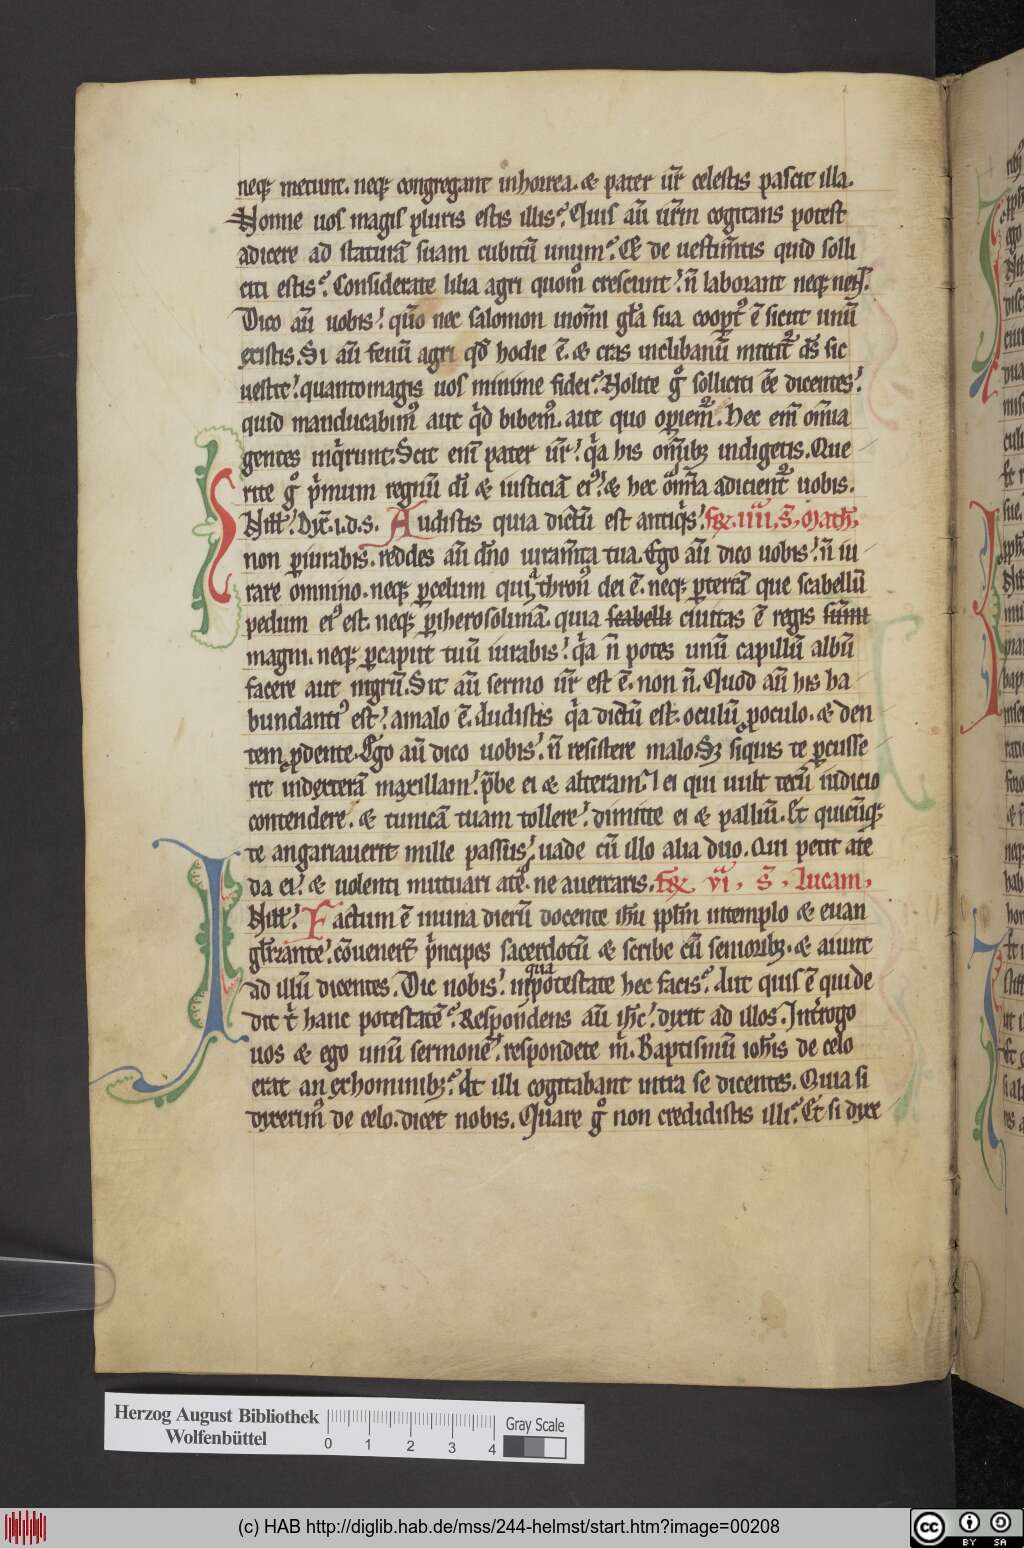 neqꝫ metunt. neqꝫ congregant inhorrea. & pater ur̄ celestis pascit illa.
Nonne uos magis pluris estis illis? Quis aū ur̄m cogitans potest
adicere ad staturā suam cubitū unum? Et de uestim̄tis quid solli
citi estis? Considerate lilia agri quom̊ crescunt? n̄ laborant neqꝫ nent.
Dico aū uobis? qm̄o nec salomon inom̄i gl̄a sua coopt᷒ ē sicut unū
existis. Si aū fenū agri qd̄ hodie ē. & cras inclibanū mittit᷒ ds̄ sic
uestit? quantomagis uos minime fidei? Nolite g̊ solliciti eē dicentes?
quid manducabim᷒ aut qd̄ bibem᷒. aut quo opiem᷒. Hec em̄ om̄ia
gentes inqͥrunt. Scit enī pater ur̄? qͣa his om̄ibꝫ indigetis. Que
rite g̊ pͥmum regnū dī & iusticiā ei᷒? & hec om̄ia adicient᷒ uobis.
Nill̄? Dix̄. i. d. s. Audistis quia dictū est antiqͥs? fꝫ. iiii. s̄. Math̄.
non ꝑiurabis. reddes aū dn̄o iuram̄ta tua. Ego aū dico uobis? n̄ iu
rare omnino. neqꝫ ꝑcelum quiͣ thron᷒ dei ē. neqꝫ ꝑterrā que scabellū
pedum ei᷒ est. neqꝫ ꝑiherosolimā. quia scabelli ciuitas ē regis sūmi
magni. neqꝫ ꝑcaput tuū iurabis? qͣa n̄ potes unū capillū albū
facere aut nigrū. Sit aū sermo ur̄ est ē. non n̄. Quod aū his ha
bundanti᷒ est? amalo ē. Audistis qͣa dictū est. oculū ꝓoculo. & den
tem ꝓdente. Ego aū dico uobis? n̄ resistere malo. Sꝫ siquis te ꝑcusse
rit indexterā maxillam? p̄be ei & alteram. Et ei qui uult tecū iudicio
contendere. & tunicā tuam tollere? dimitte ei & palliū. Et quicūqꝫ
te angariauerit mille passus? uade cū illo alia duo. Qui petit ate
da ei? & uolenti mutuari ate᷒. ne auertaris. fꝫ. vi. s̄. Lucam,
Nill̄? Factum ē inuna dierū docente ih̄u pp̄lm intemplo & euan
gl̄izante? cōuenerꝭ pͥncipes sacerdotū & scribe cū senioribꝫ. & aiunt
ad illū dicentes. Dic nobis? inqua potestate hec facis? Aut quis ē qui de
dit tͥ hanc potestatē? Respondens aū ih̄c? dixit ad illos. Int̄rogo
uos & ego unū sermonē? respondete mͥ. Baptismū ioh̄is de celo
erat an exhominibꝫ? At illi cogitabant intra se dicentes. Quia si
dixerim᷒ de celo. dicet nobis. Quare g̊ non credidistis illi? Et si dixe
Herzog August Bibliothek
Wolfenbüttel
0 1 2 3 4
Gray Scale
(c) HAB http://diglib.hab.de/mss/244-helmst/start.htm?image=00208
cc BY SA